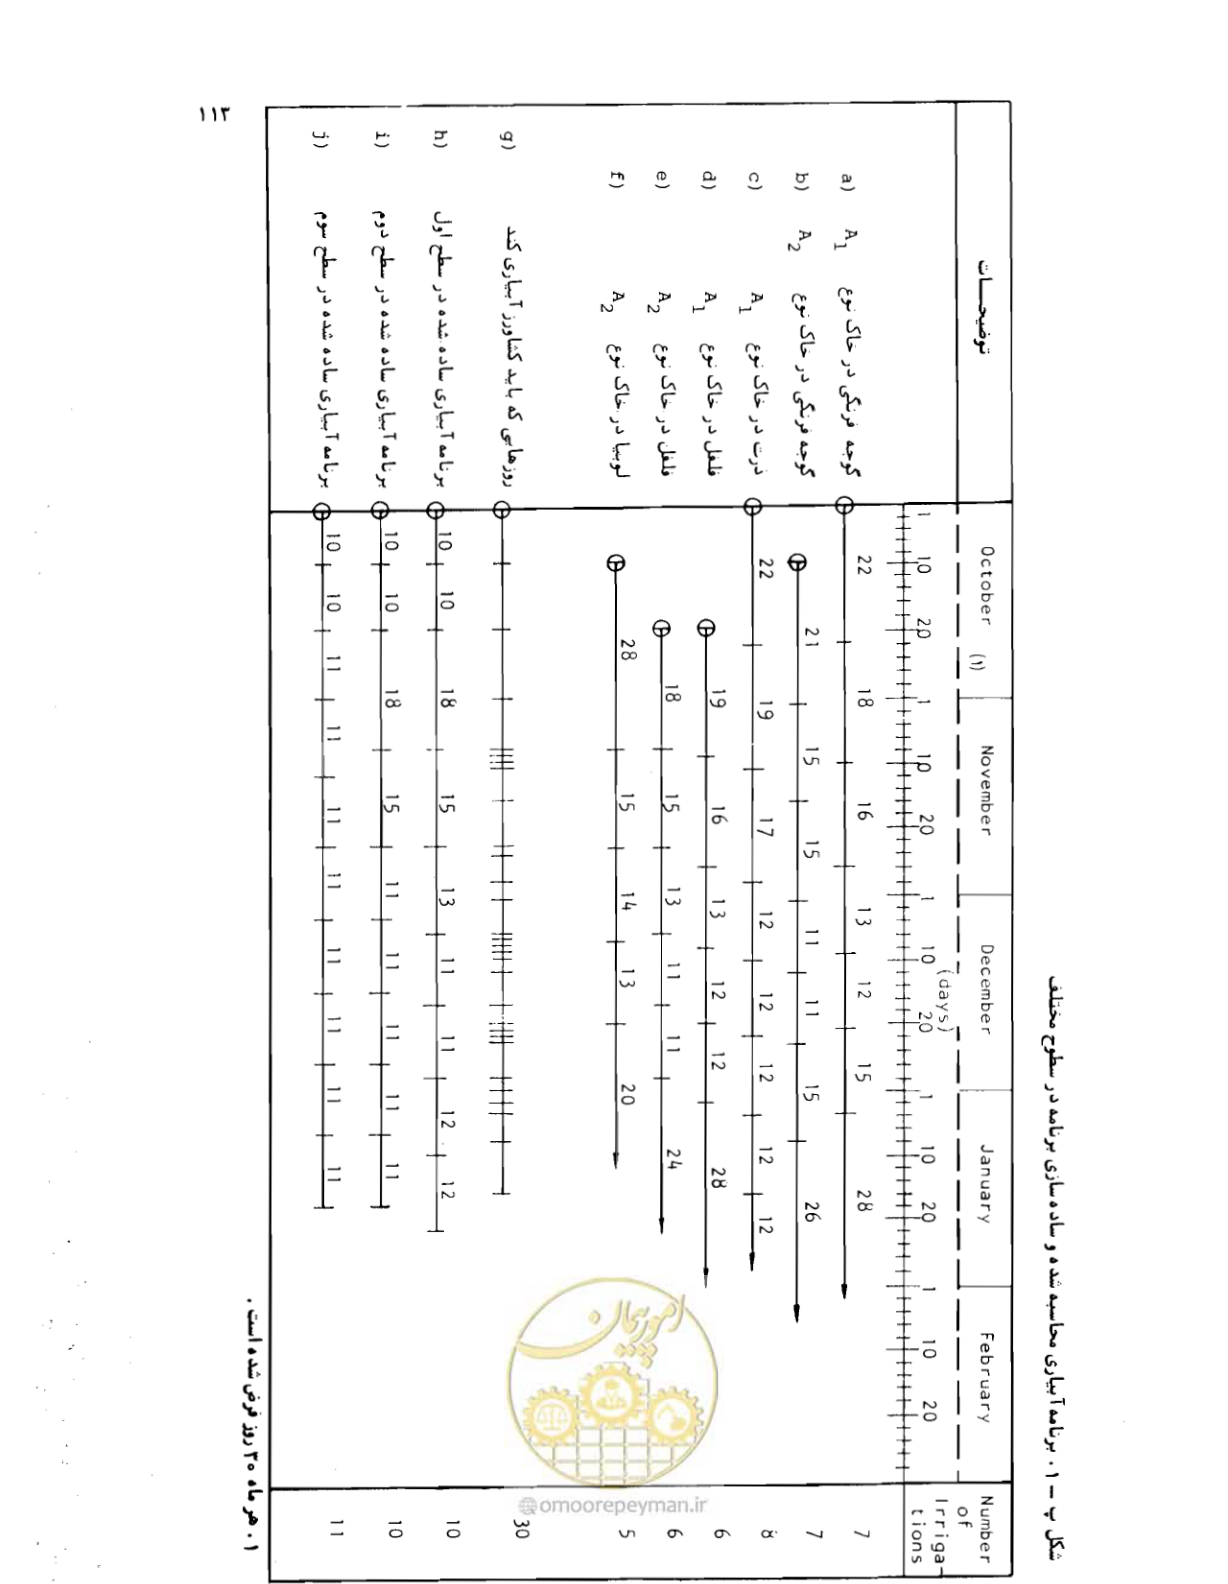 ۱۱۳
شکل پ - ۱. برنامه آبیاری محاسبه شده و ساده سازی برنامه در سطوح مختلف
توضیحـــات
October (۱) November December January February
Number of Irriga-tions
(days)
1 10 20 1 10 20 1 10 20 1 10 20 1 10 20
a) A1 گوجه فرنگی در خاک نوع 22 18 16 13 12 15 28 7
b) A2 گوجه فرنگی در خاک نوع 21 15 15 11 11 15 26 7
c) A1 ذرت در خاک نوع 22 19 17 12 12 12 12 12 8
d) A1 فلفل در خاک نوع 19 16 13 12 12 28 6
e) A2 فلفل در خاک نوع 18 15 13 11 11 24 6
f) A2 لوبیا در خاک نوع 28 15 14 13 20 5
g) روزهایی که باید کشاورز آبیاری کند 30
h) برنامه آبیاری ساده شده در سطح اول 10 10 18 15 13 11 11 12 12 10
i) برنامه آبیاری ساده شده در سطح دوم 10 10 18 15 11 11 11 11 11 10
j) برنامه آبیاری ساده شده در سطح سوم 10 10 11 11 11 11 11 11 11 11 11
۱. هر ماه ۳۰ روز فرض شده است.
امور پیمان
@omoorepeyman.ir